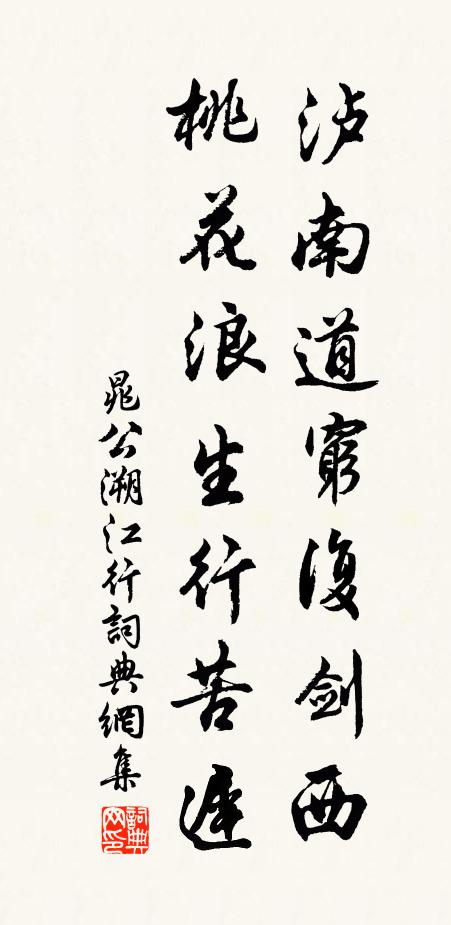 泸南道窮復剑西
桃花浪生行苦遲
晁公溯江行詞典網集
詞典网印